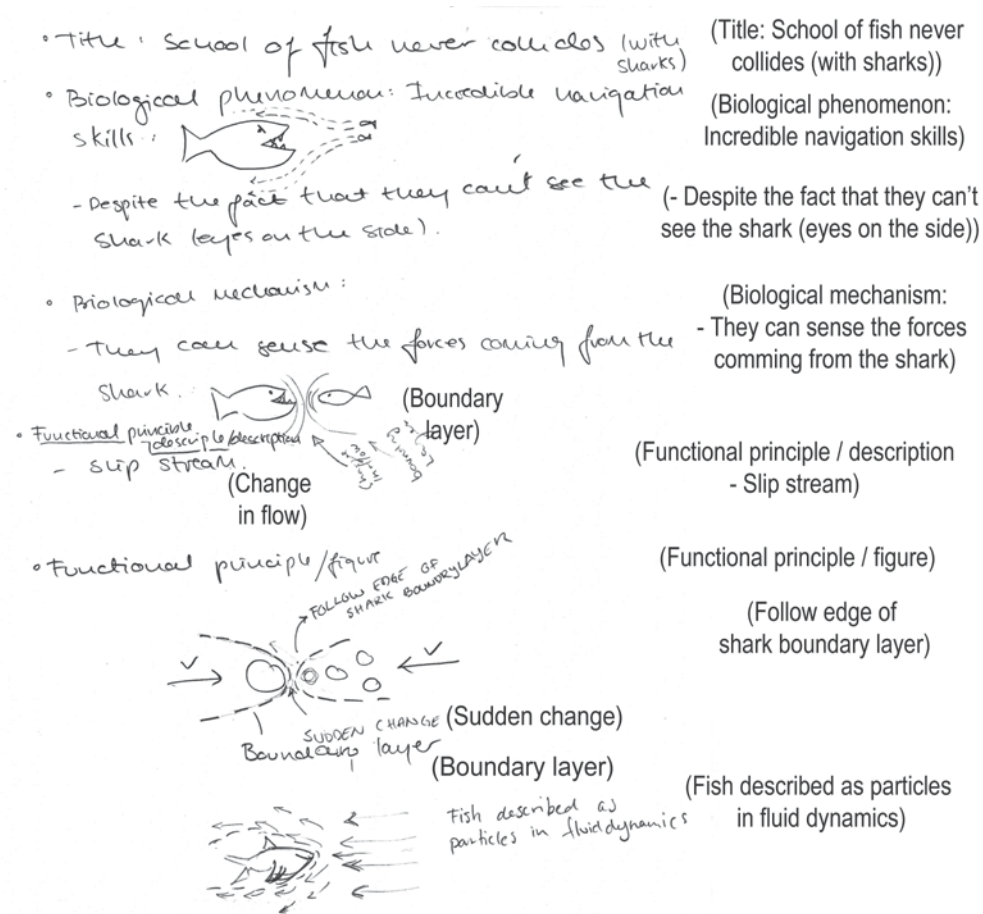 • Title: School of fish never collides (with sharks)
(Title: School of fish never
collides (with sharks))
• Biological phenomenon: Incredible navigation
skills:
(Biological phenomenon:
Incredible navigation skills)
- Despite the fact that they can't see the
shark (eyes on the side).
(- Despite the fact that they can't
see the shark (eyes on the side))
• Biological mechanism:
- They can sense the forces coming from the
shark.
(Biological mechanism:
- They can sense the forces
comming from the shark)
(Boundary
layer)
• Functional principle
/description
- slip stream.
(Change
in flow)
(Functional principle / description
- Slip stream)
• Functional principle/figure
(Functional principle / figure)
FOLLOW EDGE OF
SHARK BOUNDRYLAYER
(Follow edge of
shark boundary layer)
V
V
SUDDEN CHANGE
(Sudden change)
Boundary layer
(Boundary layer)
Fish described as
particles in fluid dynamics
(Fish described as particles
in fluid dynamics)